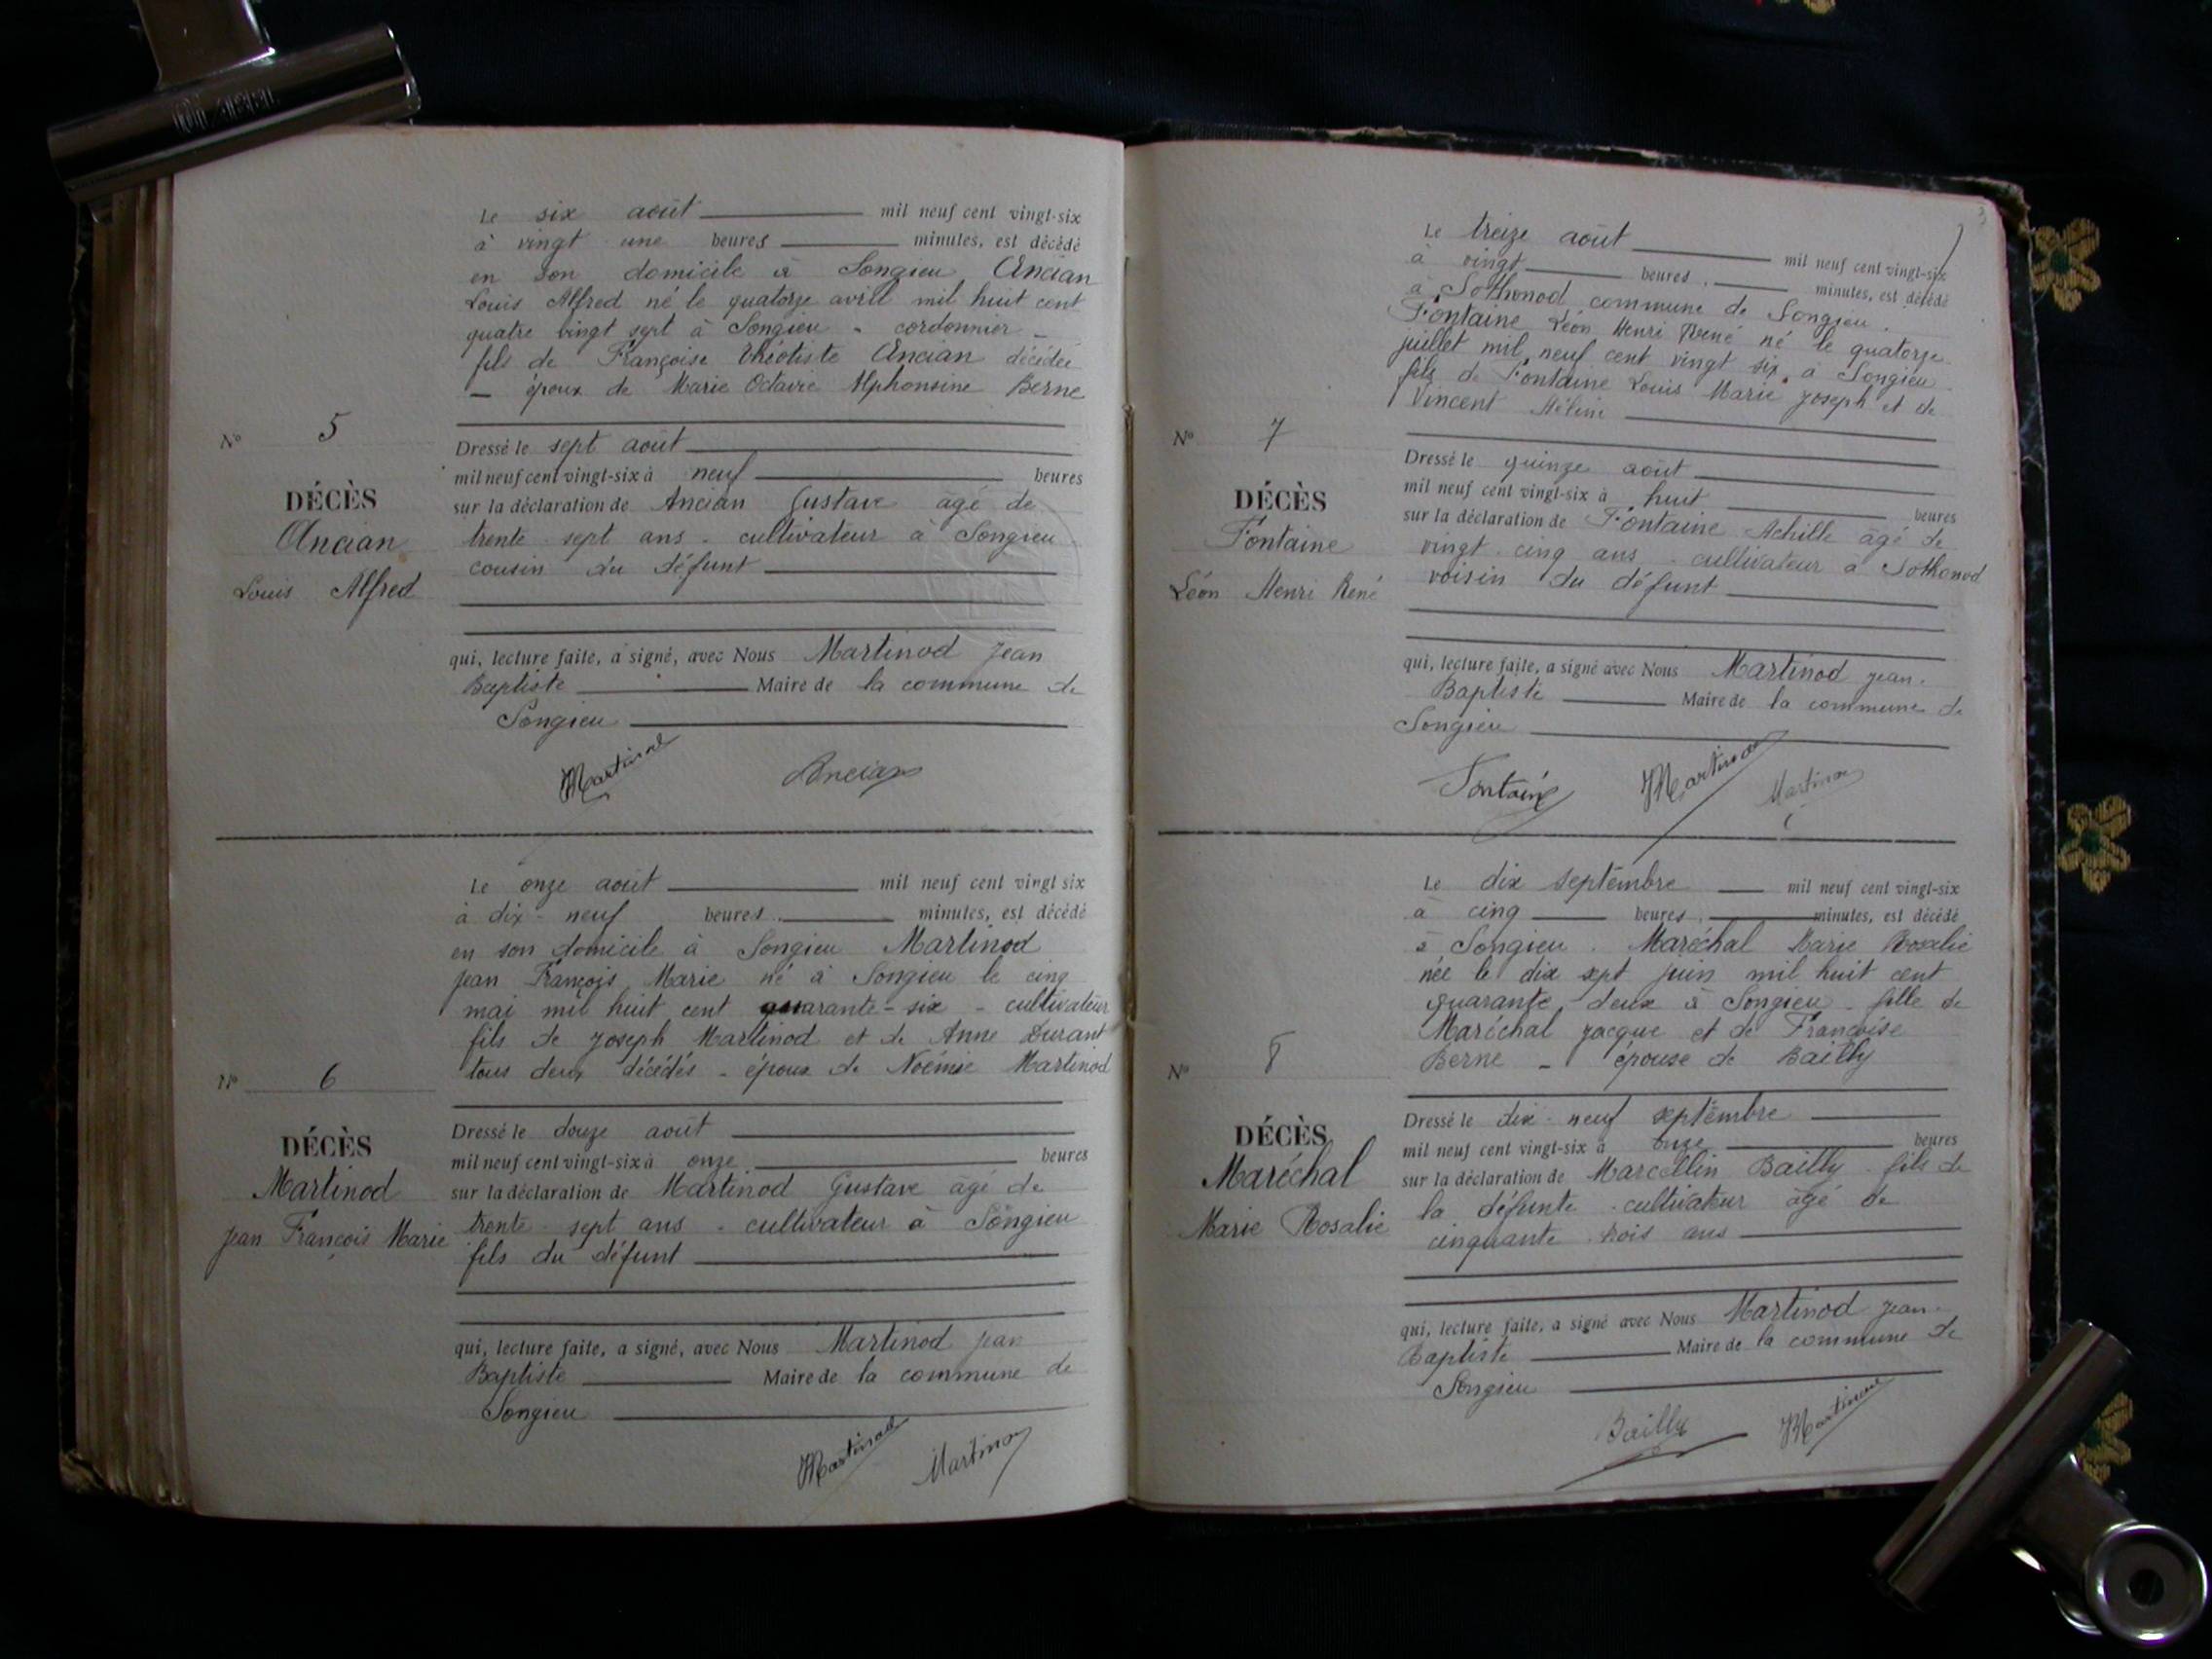 Le six août mil neuf cent vingt-six
à vingt une heures minutes, est décédé
en son domicile à Songieu Ancian
Louis Alfred né le quatorze avril mil huit cent
quatre vingt sept à Songieu - cordonnier -
fils de Françoise Théotiste Ancian décédée
- époux de Marie Octavie Alphonsine Berne
N° 5
DÉCÈS
Ancian
Louis Alfred
Dressé le sept août
mil neuf cent vingt-six à neuf heures
sur la déclaration de Ancian Gustave âgé de
trente sept ans - cultivateur à Songieu
cousin du défunt
qui, lecture faite, a signé, avec Nous Martinod Jean
Baptiste Maire de la commune de
Songieu
Martinod Ancian
Le onze août mil neuf cent vingt six
à dix-neuf heures minutes, est décédé
en son domicile à Songieu Martinod
Jean François Marie né à Songieu le cinq
mai mil huit cent quarante-six - cultivateur
fils de Joseph Martinod et de Anne Durant
tous deux décédés - époux de Noémie Martinod
N° 6
DÉCÈS
Martinod
Jean François Marie
Dressé le douze août
mil neuf cent vingt-six à onze heures
sur la déclaration de Martinod Gustave âgé de
trente sept ans - cultivateur à Songieu
fils du défunt
qui, lecture faite, a signé, avec Nous Martinod Jean
Baptiste Maire de la commune de
Songieu
Martinod Martinod
Le treize août mil neuf cent vingt-six
à vingt heures minutes, est décédé
à Sothonod commune de Songieu.
Fontaine Léon Henri René né le quatorze
juillet mil neuf cent vingt six à Songieu
fils de Fontaine Louis Marie Joseph et de
Vincent Hélène
N° 7
DÉCÈS
Fontaine
Léon Henri René
Dressé le quinze août
mil neuf cent vingt-six à huit heures
sur la déclaration de Fontaine Achille âgé de
vingt-cinq ans - cultivateur à Sothonod
voisin du défunt
qui, lecture faite, a signé avec Nous Martinod Jean-
Baptiste Maire de la commune de
Songieu
Fontaine Martinod Martinod
Le dix septembre mil neuf cent vingt-six
à cinq heures minutes, est décédé
à Songieu. Maréchal Marie Rosalie
née le dix sept juin mil huit cent
quarante deux à Songieu - fille de
Maréchal Jacque et de Françoise
Berne - épouse de Bailly
N° 8
DÉCÈS
Maréchal
Marie Rosalie
Dressé le dix-neuf septembre
mil neuf cent vingt-six à onze heures
sur la déclaration de Marcellin Bailly - fils de
la défunte - cultivateur âgé de
cinquante trois ans
qui, lecture faite, a signé avec Nous Martinod Jean-
Baptiste Maire de la commune de
Songieu
Bailly Martinod